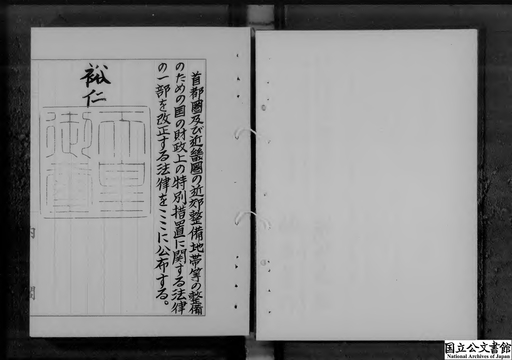 首都圏及び近畿圏の近郊整備地帯等の整備
のための国の財政上の特別措置に関する法律
の一部を改正する法律をここに公布する。
裕仁
天皇御璽
内閣
国立公文書館
National Archives of Japan